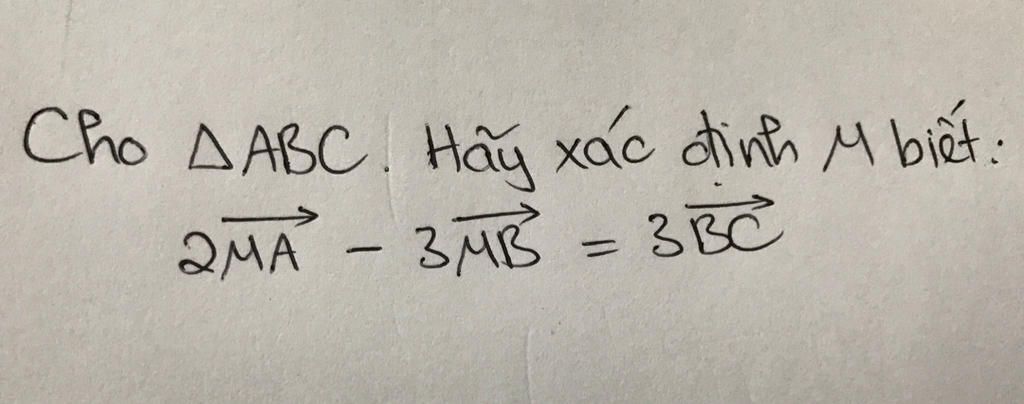 Cho △ABC. Hãy xác định M biết:
2\overrightarrow{MA} - 3\overrightarrow{MB} = 3\overrightarrow{BC}